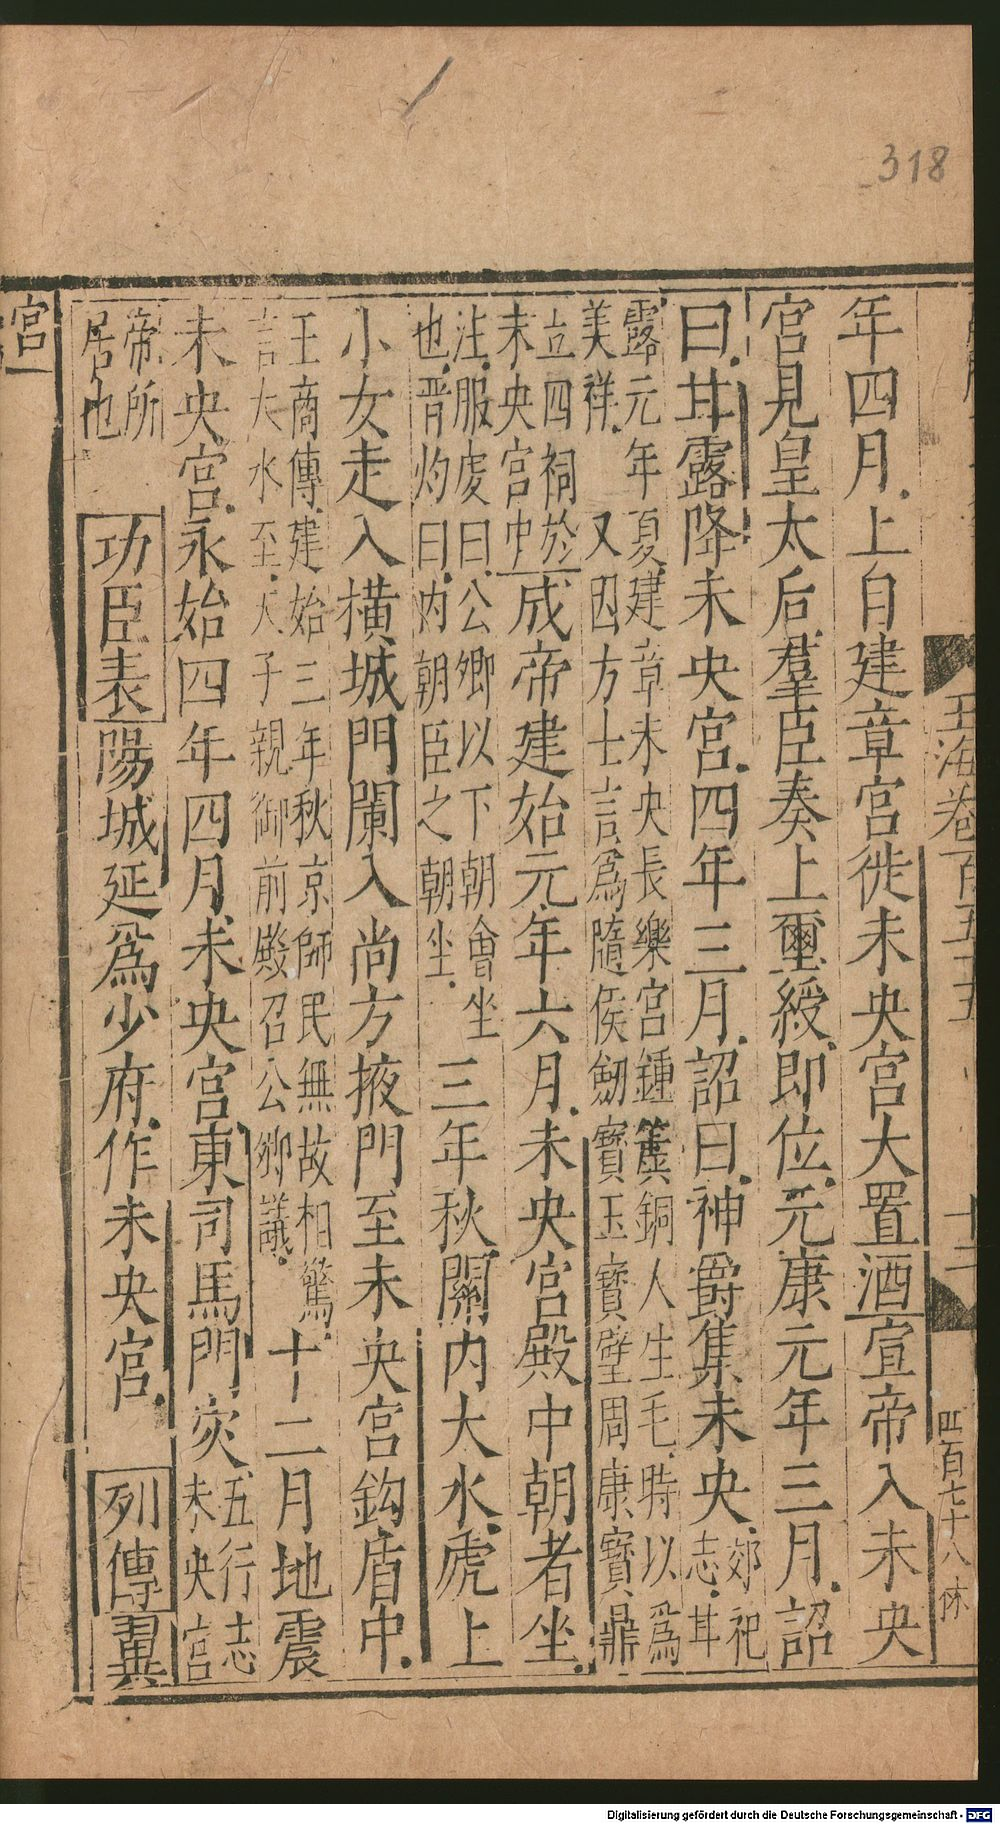 318
玉海卷百五十五
十二
四百七十八
年四月上自建章宮徙未央宮大置酒宣帝入未央
宮見皇太后羣臣奏上璽綬即位元康元年三月詔
曰甘露降未央宮四年三月詔曰神爵集未央郊祀
志甘
露元年夏建章未央長樂宮鍾簴銅人生毛時以爲
美祥又因方士言爲隨侯劒寶玉寶璧周康寶鼎
立四祠於
未央宮中成帝建始元年六月未央宮殿中朝者坐
注服虔曰公卿以下朝會坐
也晋灼曰内朝臣之朝坐三年秋關内大水虒上
小女走入橫城門闌入尚方掖門至未央宮鈎盾中
王商傳建始三年秋京師民無故相驚
言大水至天子親御前殿召公卿議十二月地震
未央宮永始四年四月未央宮東司馬門灾五行志
未央宮
帝所
居也功臣表陽城延爲少府作未央宮列傳翼
宮
Digitalisierung gefördert durch die Deutsche Forschungsgemeinschaft - DFG